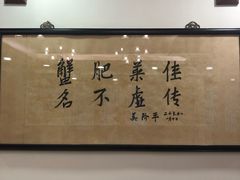 蟹肥菓佳
名不虚传
吴阶平